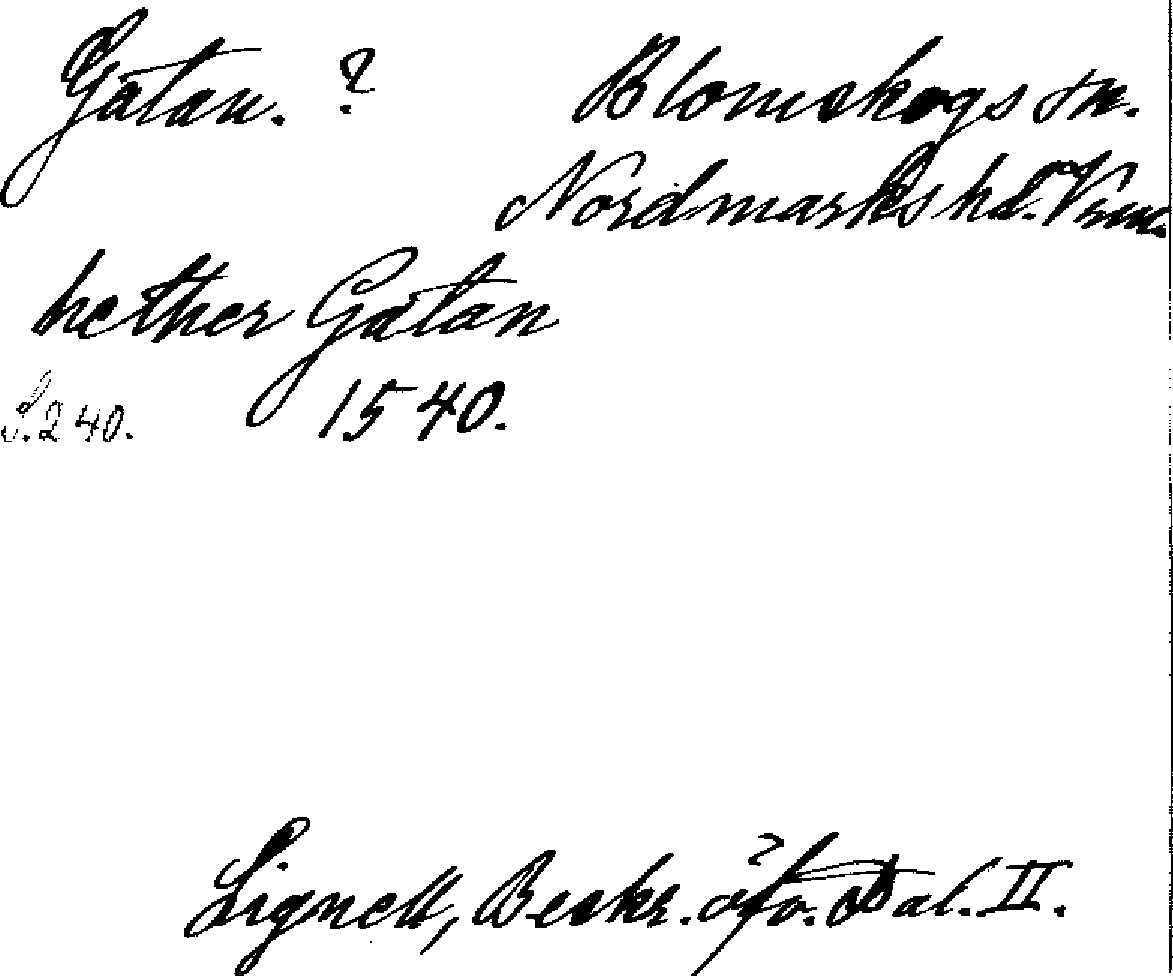 Gatan. ? Blomskogs sn.
Nordmarks hd. Vrml.
hether Gatan
S. 240. 1540.
Lignell, Beskr. öfv. Dal. II.